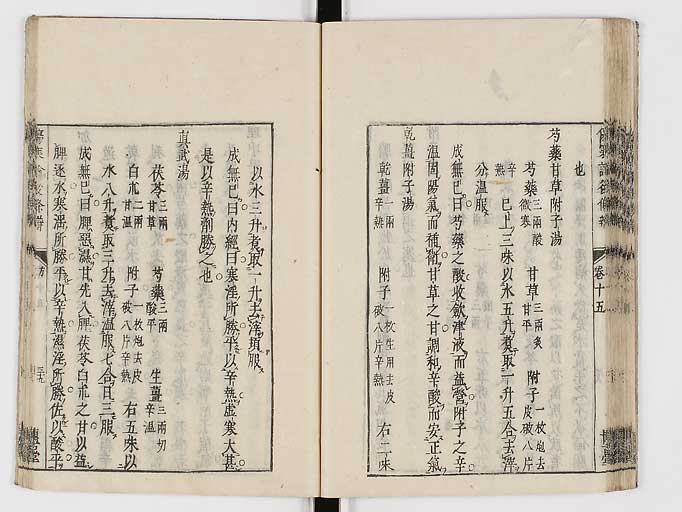 也
芍藥甘草附子湯
芍藥三兩酸微寒 甘草三兩炙甘平 附子一枚炮去皮破八片
辛熱 已上三味以水五升煮取一升五合去滓
分溫服
成無已曰芍藥之酸收斂津液而益營附子之辛
溫固陽氣而補衞甘草之甘調和辛酸而安正氣
乾薑附子湯
乾薑一兩辛熱 附子一枚生用去皮破八片辛熱 右二味
以水三升煮取一升去滓頓服
成無已曰內經曰寒淫所勝平以辛熱虛寒大甚
是以辛熱劑勝之也
眞武湯
茯苓三兩甘平 芍藥三兩酸平 生薑三兩切辛溫
白朮二兩甘溫 附子一枚炮去皮破八片辛熱 右五味以
水八升煮取三升去滓溫服七合日三服
成無已曰脾惡濕甘先入脾茯苓白朮之甘以益
脾逐水寒淫所勝平以辛熱濕淫所勝佐以酸平
卷十五